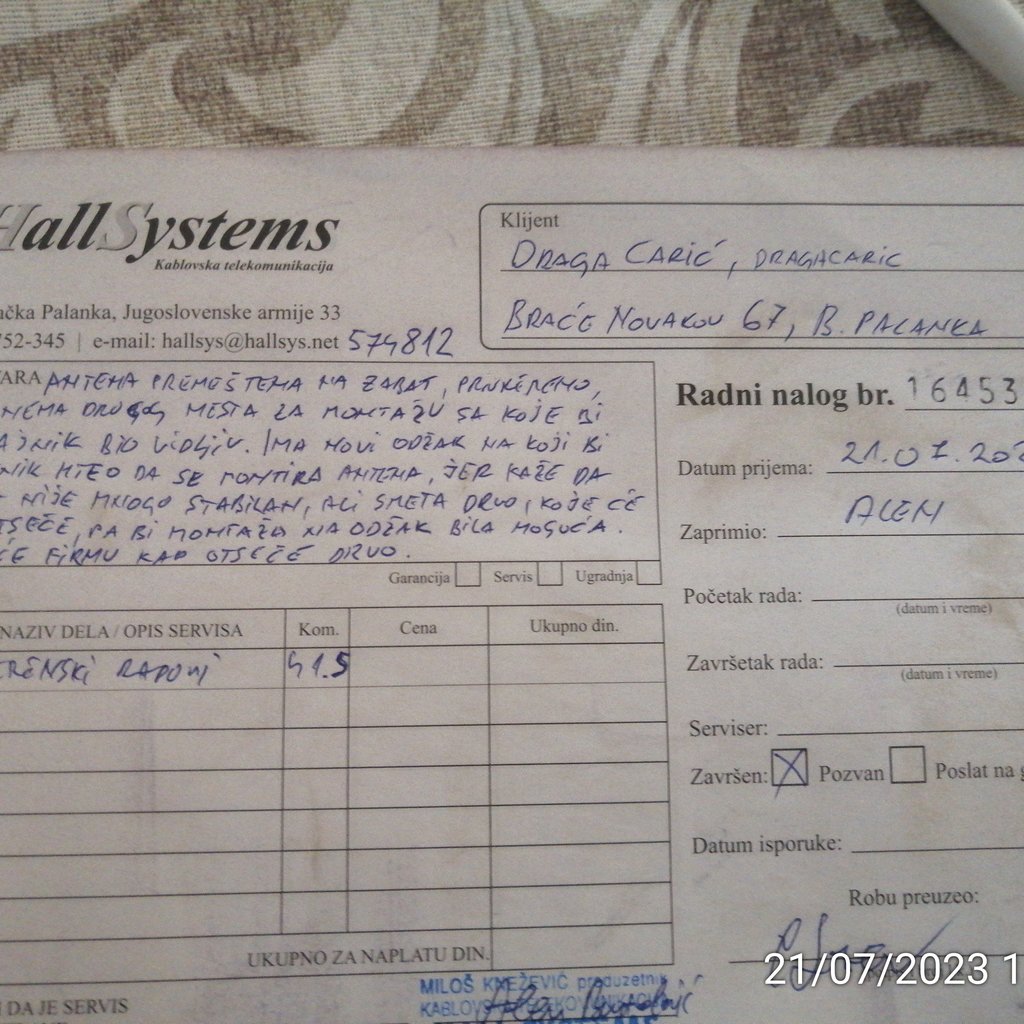 HallSystems
Kablovska telekomunikacija
ačka Palanka, Jugoslovenske armije 33
752-345 | e-mail: hallsys@hallsys.net 574812
Klijent
DRAGA CARIĆ, DRAGACARIC
BRAĆE NOVAKOV 67, B. PALANKA
ANTENA PREMEŠTENA NA ZABAT, PRIVREMENO,
NEMA DRUGOG MESTA ZA MONTAŽU SA KOJE BI
BIO VIDLJIV. IMA NOVI ODŽAK NA KOJI BI
NIK HTEO DA SE MONTIRA ANTENA, JER KAŽE DA
NIJE MNOGO STABILAN, ALI SMETA DRVO, KOJE ĆE
TSEĆE, PA BI MONTAŽA NA ODŽAK BILA MOGUĆA.
ĆE FIRMU KAD OTSEČE DRVO.
Garancija Servis Ugradnja
Radni nalog br. 16453
Datum prijema: 21.07.202
Zaprimio: ALEN
Početak rada:
(datum i vreme)
Završetak rada:
(datum i vreme)
Serviser:
Završen: X Pozvan Poslat na
Datum isporuke:
Robu preuzeo:
NAZIV DELA / OPIS SERVISA Kom. Cena Ukupno din.
ERENSKI RADOVI 41.5
UKUPNO ZA NAPLATU DIN.
MILOŠ KNEŽEVIĆ preduzetnik
I DA JE SERVIS
21/07/2023 1